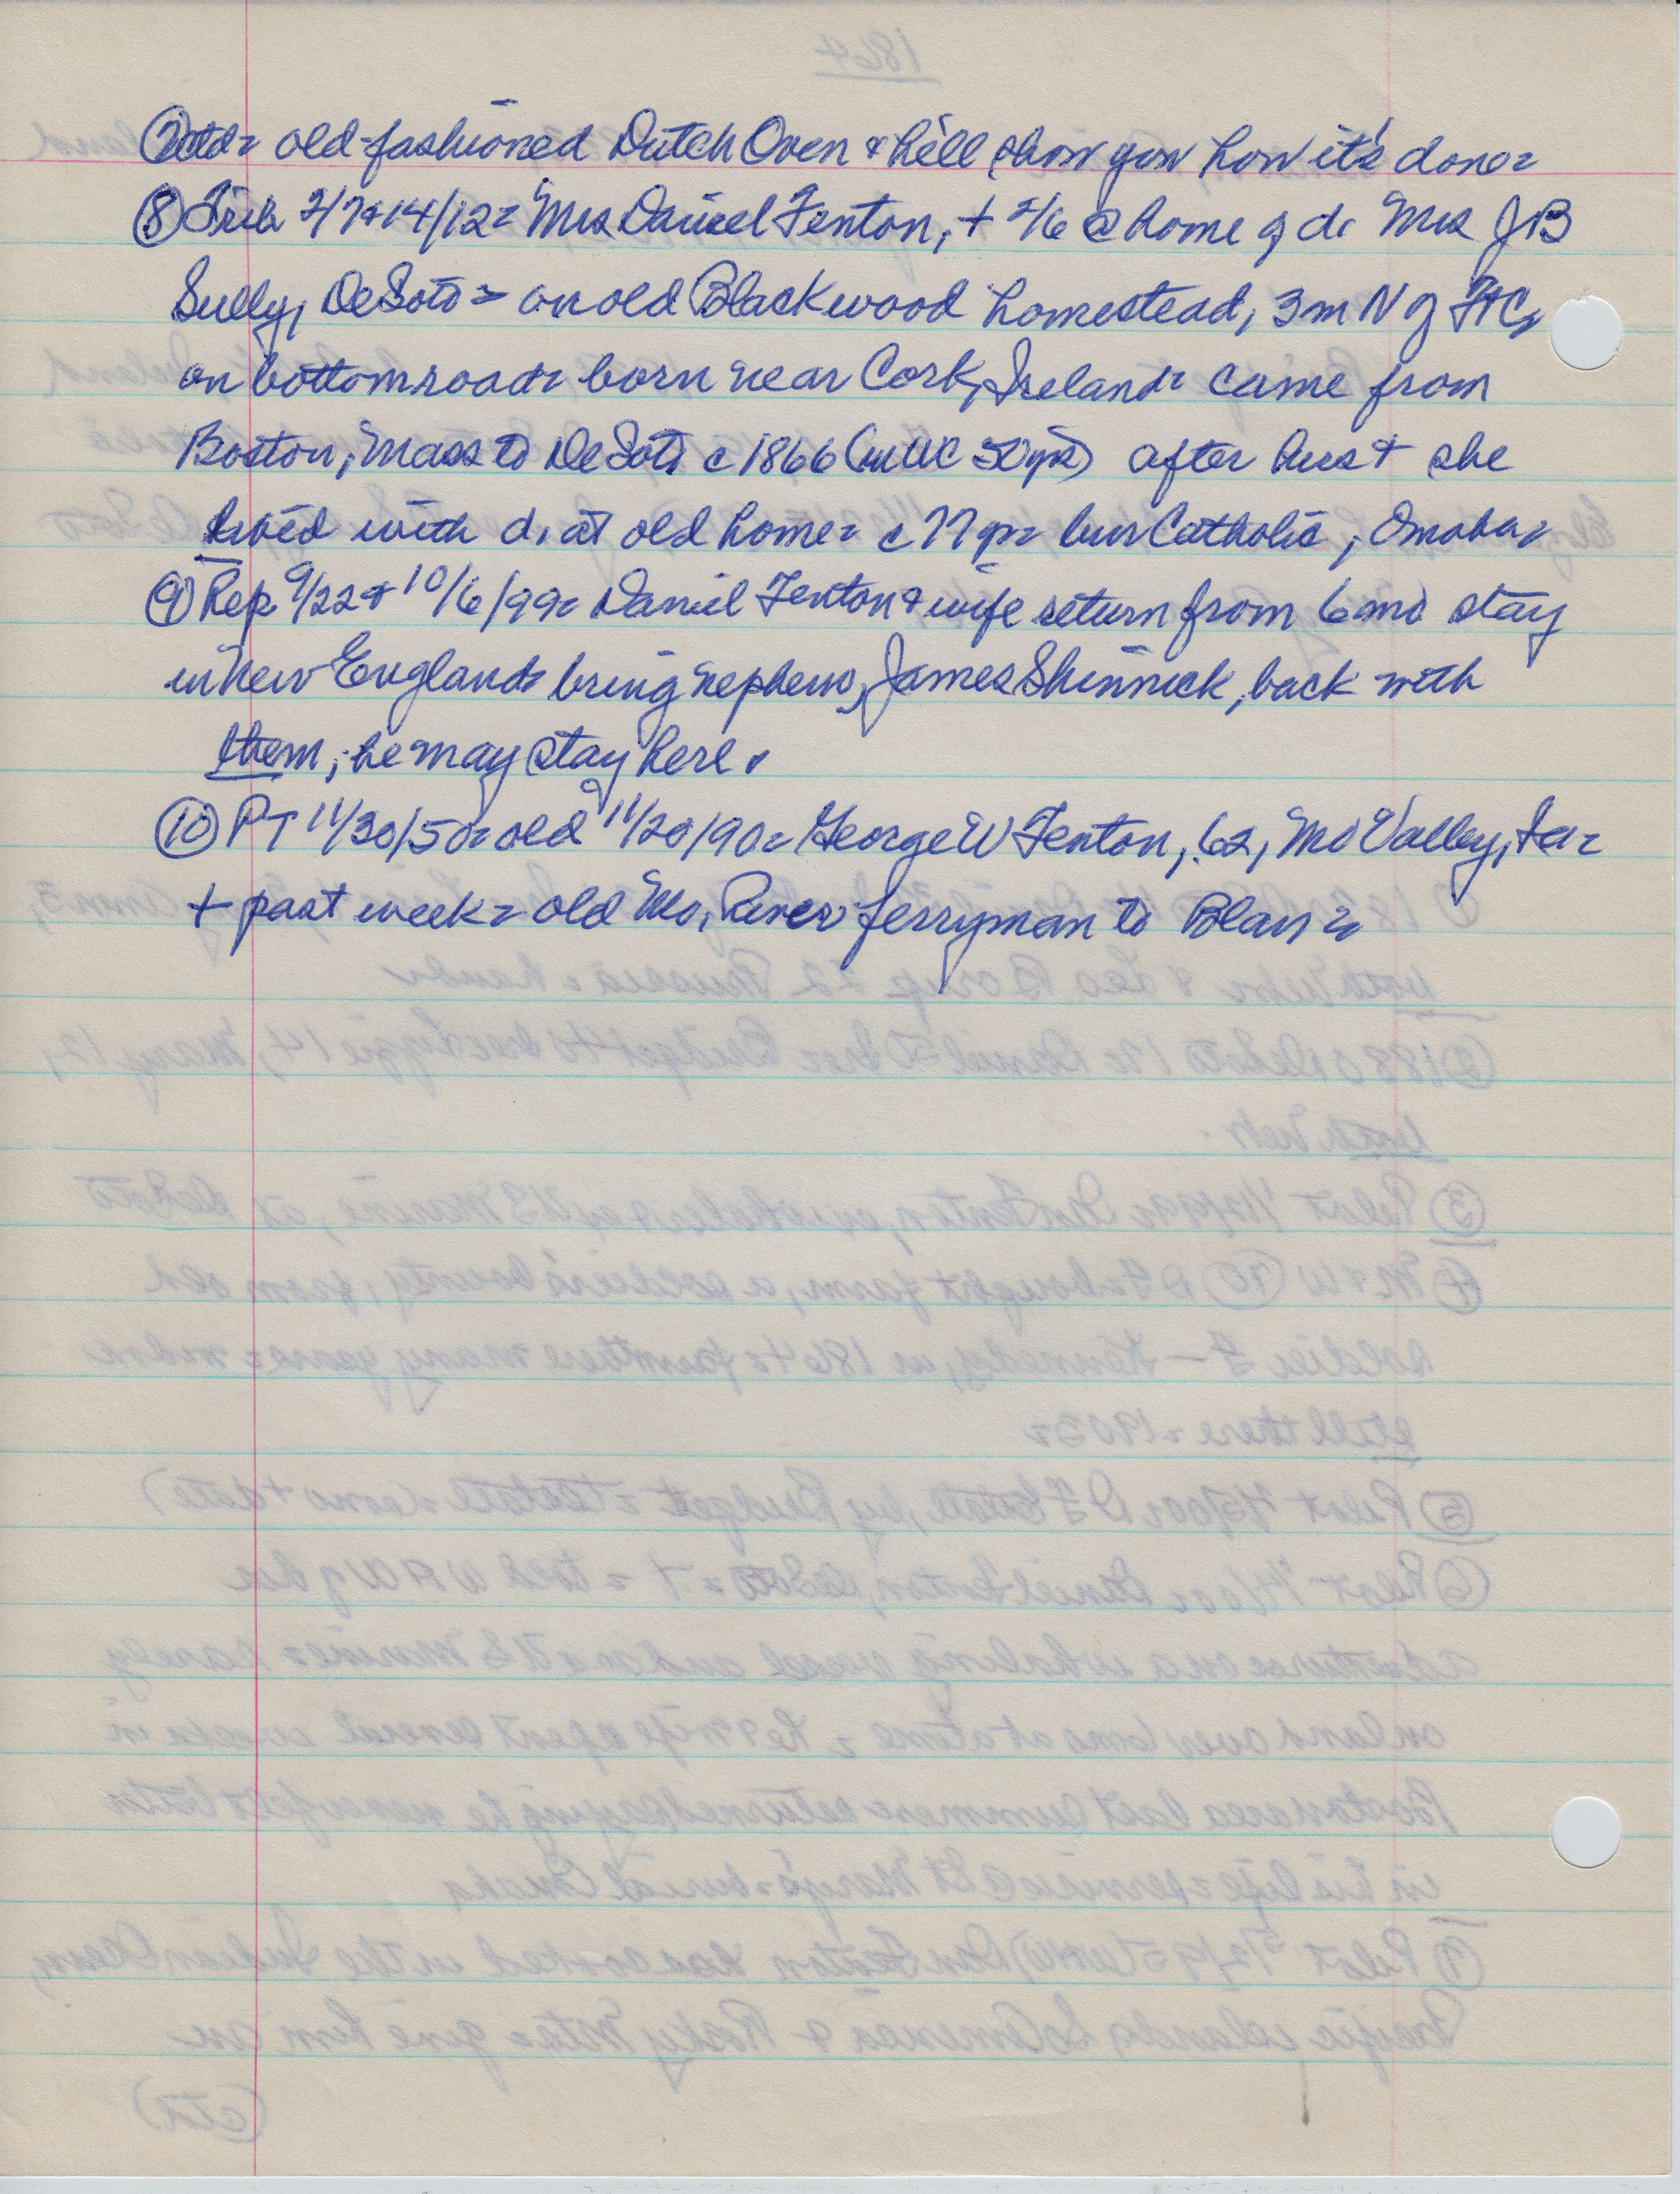 ⑦ctd= old-fashioned Dutch Oven & he'll show you how it's done=
⑧ Trib 2/7&14/12= Mrs Daniel Fenton, + 2/6 @ home of d. Mrs JB
Sully, DeSoto = on old Blackwood homestead, 3m N of FtC,
on bottom road= born near Cork, Ireland= came from
Boston, Mass to DeSoto c1866 (in WC 50 yrs) after hus + she
lived with d. at old home= c77 yr= bur Catholic, Omaha=
⑨ Rep 9/22 & 10/6/99= Daniel Fenton & wife return from 6 mo stay
in New England= bring nephew, James Shinnick, back with
them; he may stay here.
⑩ PT 11/30/50= old 11/20/90= George W Fenton, 62, Mo Valley, Ia=
+ past week= old Mo. River ferryman to Blair=